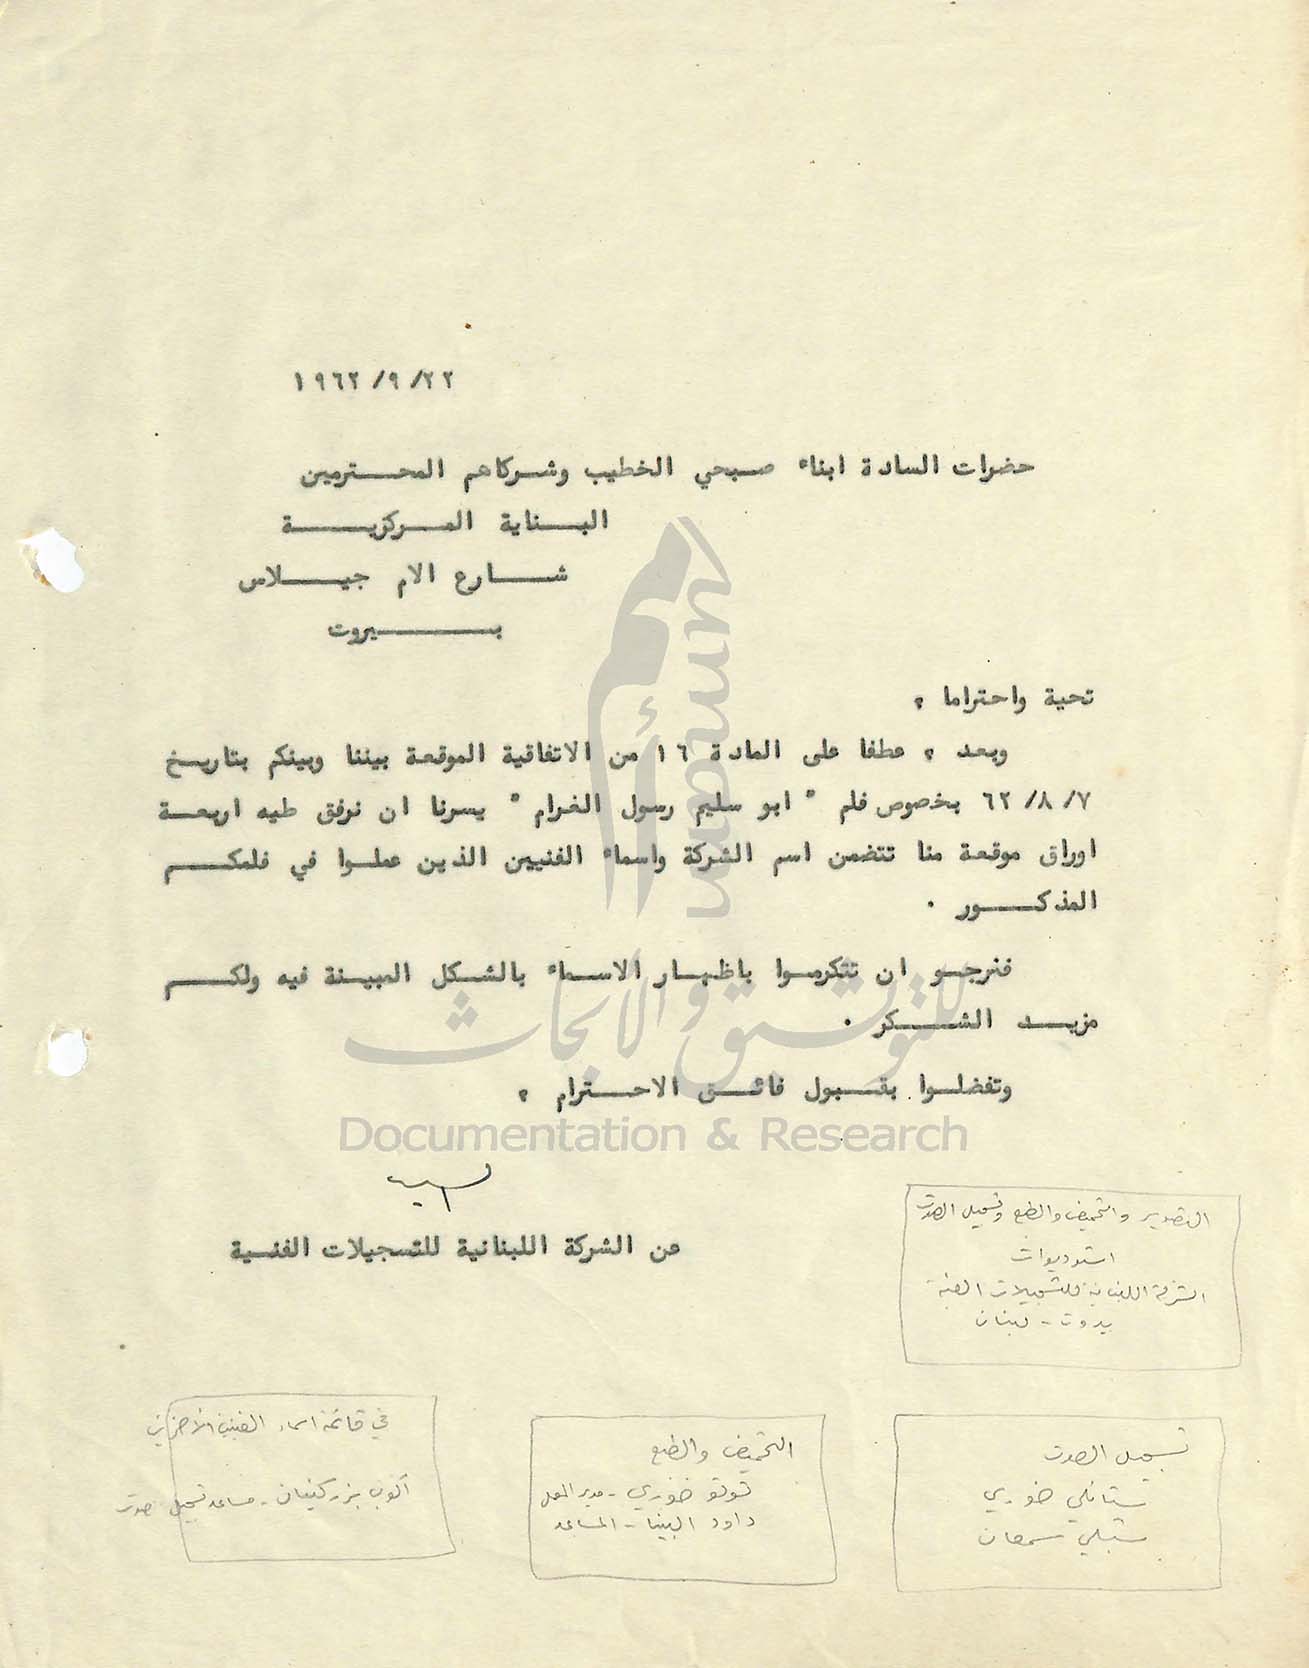 ١٩٦٢/٩/٢٢
حضرات السادة ابناء صبحي الخطيب وشركاهم المحترمين
البناية المركزية
شارع الام جيلاس
بيروت
تحية واحتراما ،
وبعد ، عطفا على المادة ١٦ من الاتفاقية الموقعة بيننا وبينكم بتاريخ
٦٢/٨/٧ بخصوص فلم " ابو سليم رسول الغرام " يسرنا ان نرفق طيه اربعة
اوراق موقعة منا تتضمن اسم الشركة واسماء الفنيين الذين عملوا في فلمكم
المذكور .
فنرجو ان تتكرموا باظهار الاسماء بالشكل المبينة فيه ولكم
مزيد الشكر .
وتفضلوا بقبول فائق الاحترام ،
عن الشركة اللبنانية للتسجيلات الفنية
التصوير والتحميض والطبع وتسجيل الصوت
استوديوات
الشركة اللبنانية للتسجيلات الفنية
بيروت - لبنان
تسجيل الصوت
ستانلي خوري
شبلي سمعان
التحميض والطبع
توتو خوري - مدير المعمل
داود البينا - المساعد
في قائمة اسماء الفنيين الآخرين
آكوب بزركنيان - مساعد تسجيل صوت
أمم umam
للتوثيق والأبحاث
Documentation & Research